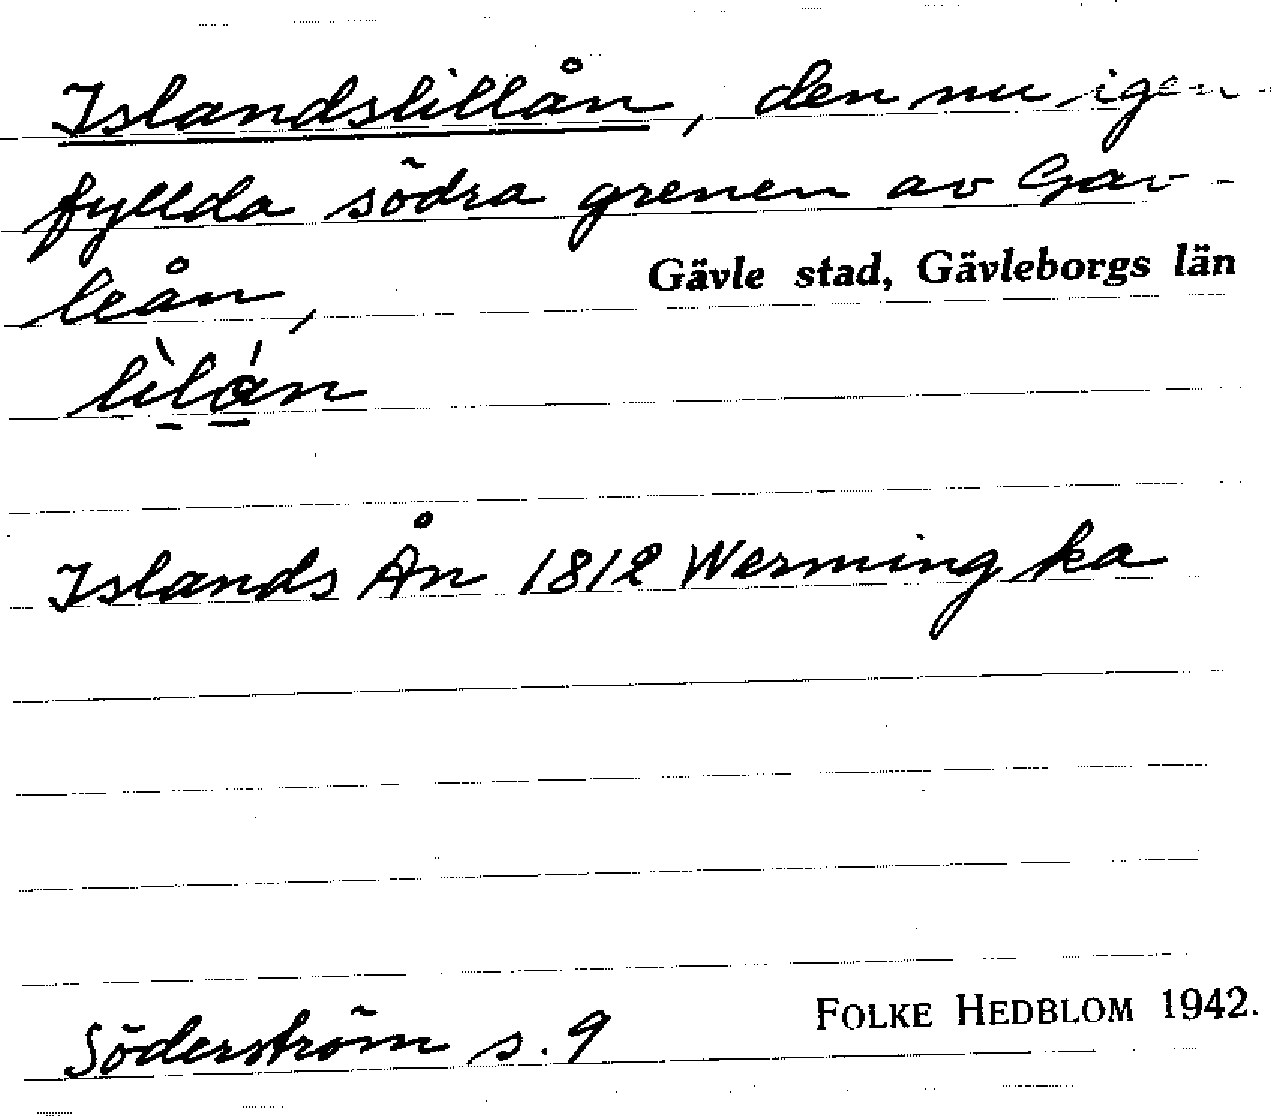 Islandslillån, den nu igen-
fyllda södra grenen av Gav-
leån,
Gävle stad, Gävleborgs län
lìlán
Islands Ån 1812 Werming ka
Söderström s. 9
FOLKE HEDBLOM 1942.